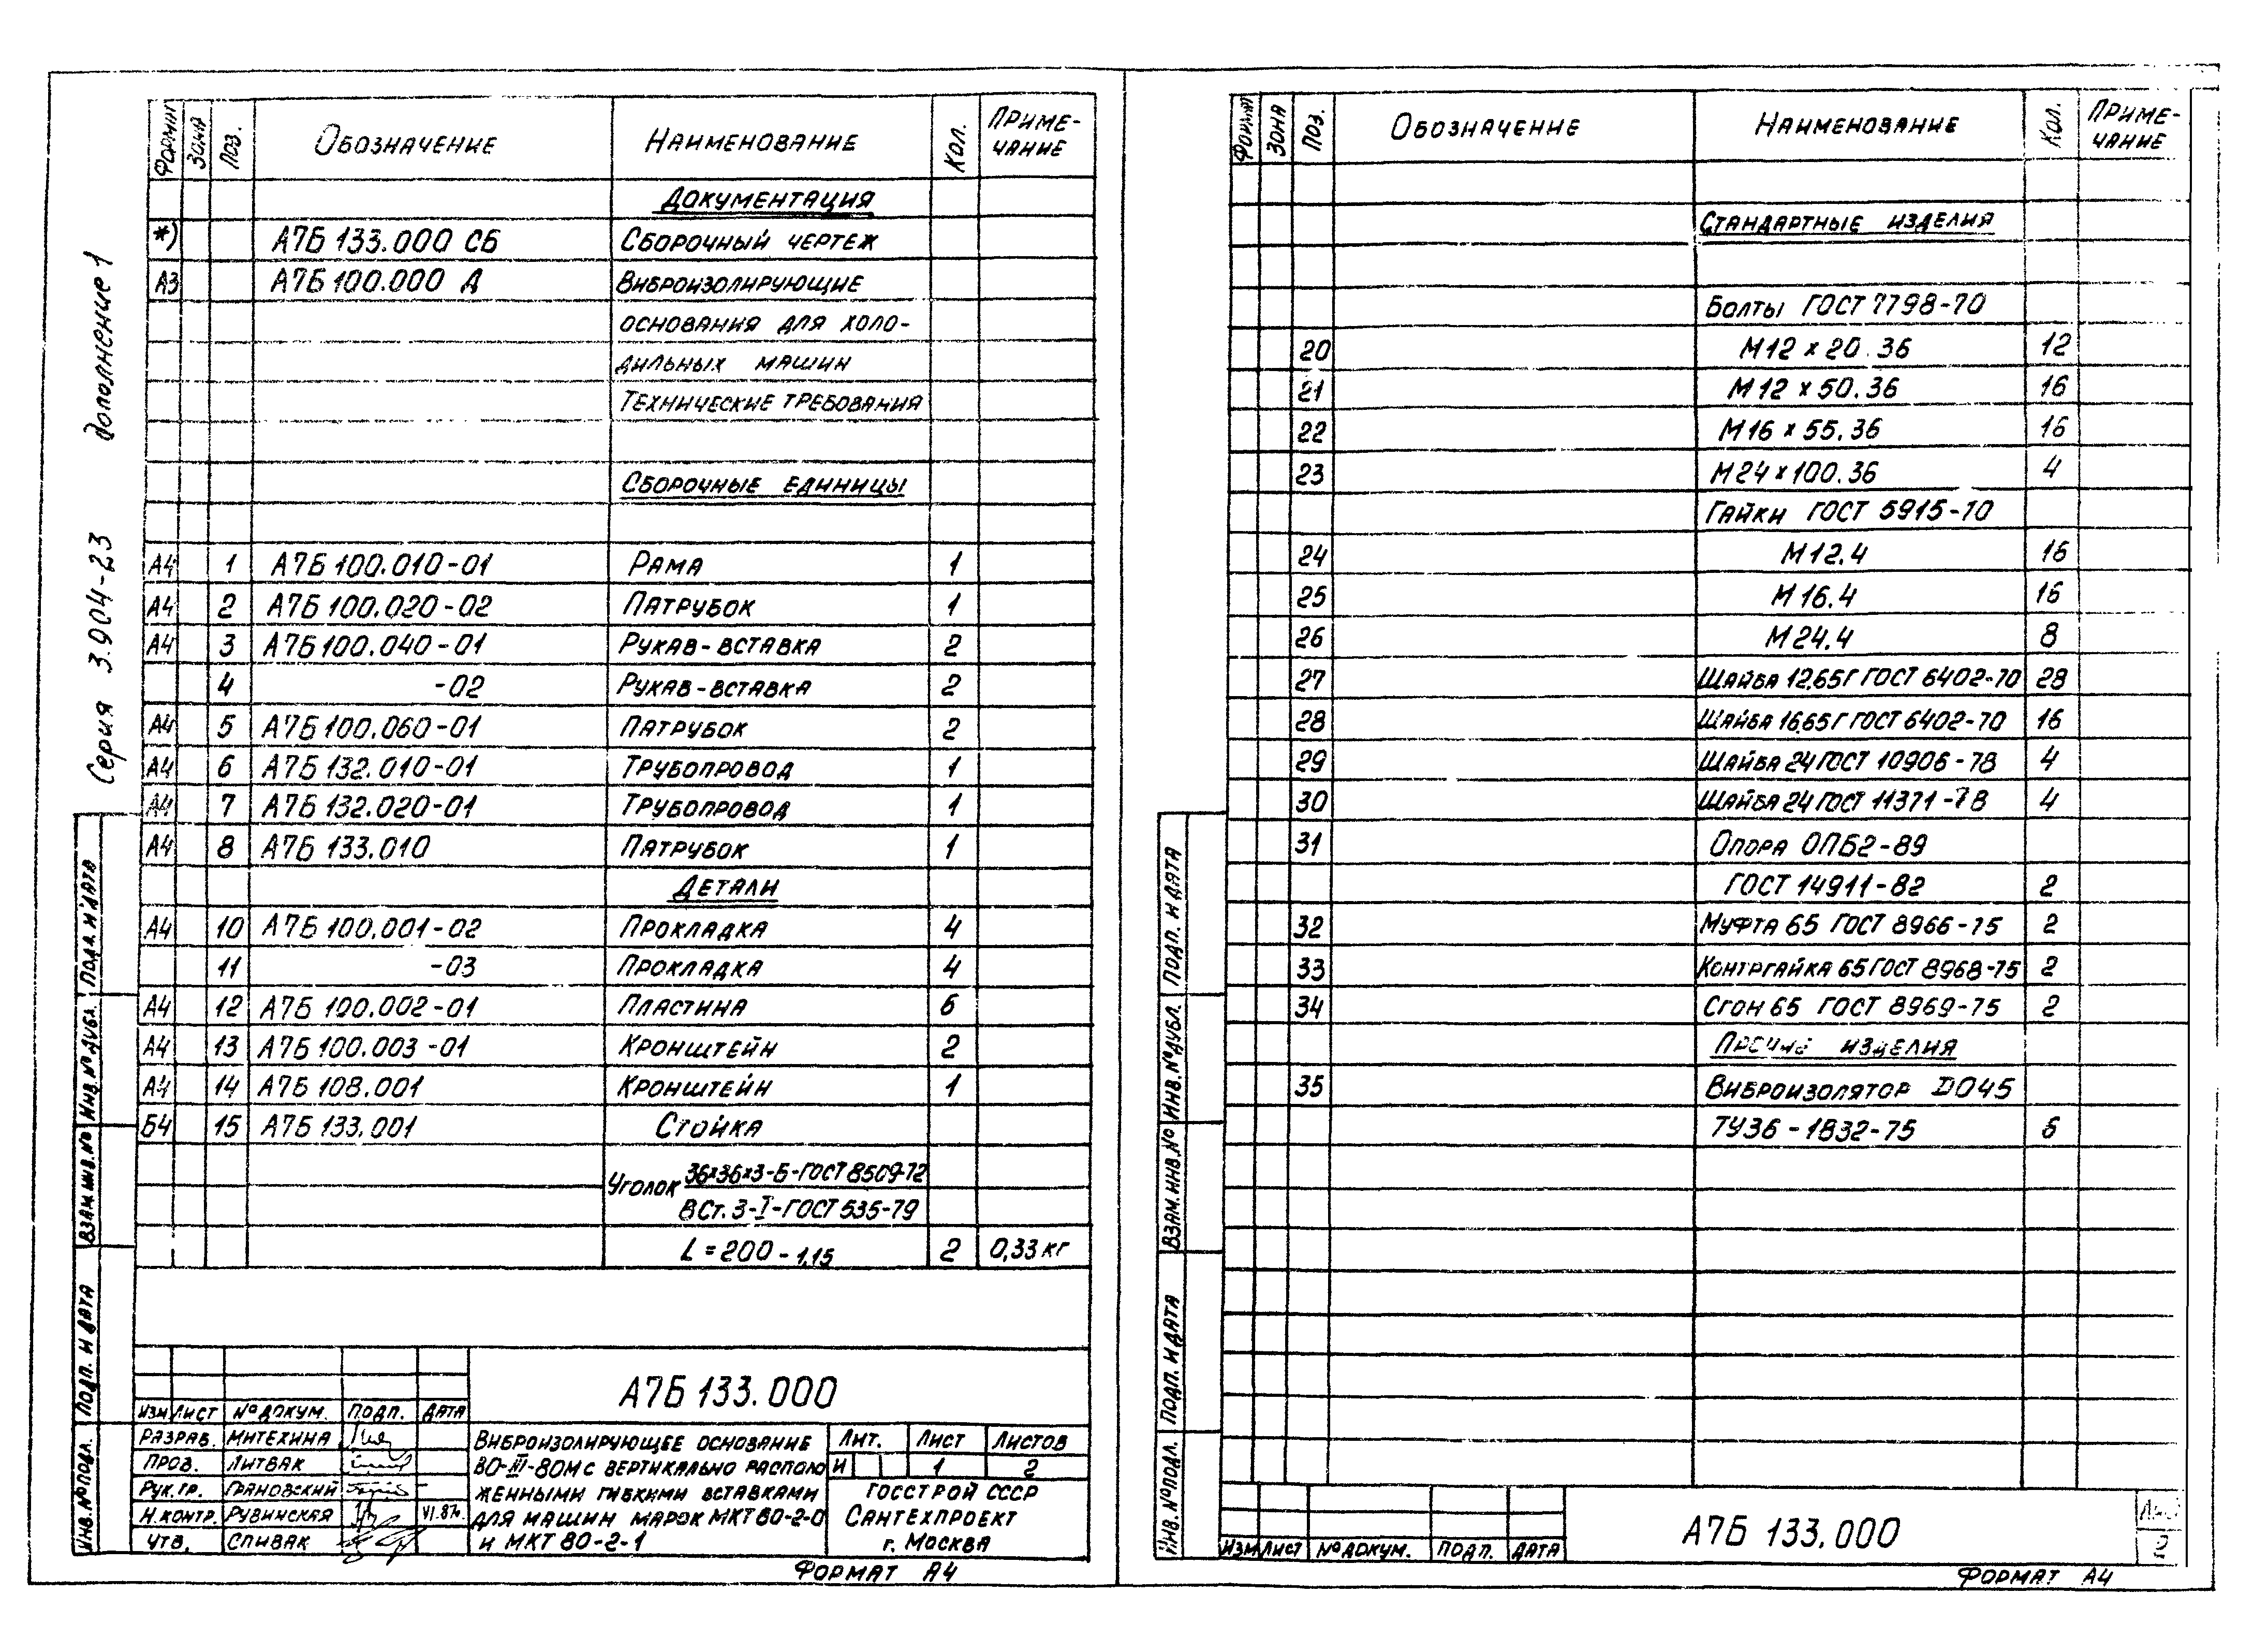 Серия 3.904-23 дополнение 1
Формат Зона Поз. Обозначение Наименование Кол. Приме-
чание
Документация
*) А7Б 133.000 СБ Сборочный чертеж
А3 А7Б 100.000 Д Виброизолирующие
основания для холо-
дильных машин
Технические требования
Сборочные единицы
А4 1 А7Б 100.010-01 Рама 1
А4 2 А7Б 100.020-02 Патрубок 1
А4 3 А7Б 100.040-01 Рукав-вставка 2
4 -02 Рукав-вставка 2
А4 5 А7Б 100.060-01 Патрубок 2
А4 6 А7Б 132.010-01 Трубопровод 1
А4 7 А7Б 132.020-01 Трубопровод 1
А4 8 А7Б 133.010 Патрубок 1
Детали
А4 10 А7Б 100.001-02 Прокладка 4
11 -03 Прокладка 4
А4 12 А7Б 100.002-01 Пластина 6
А4 13 А7Б 100.003-01 Кронштейн 2
А4 14 А7Б 108.001 Кронштейн 1
Б4 15 А7Б 133.001 Стойка
Уголок 36х36х3-Б-ГОСТ 8509-72
ВСт.3-I-ГОСТ 535-79
L=200-1,15 2 0,33 кг
Инв.№ подл. Подп. и дата Взам.инв.№ Инв.№ дубл. Подп. и дата
А7Б 133.000
Изм Лист № докум. Подп. Дата
Разраб. Митехина
Пров. Литвак
Рук.гр. Грановский
Н.контр. Рувинская VI.87г.
Утв. Спивак
Виброизолирующее основание
ВО-III-80М с вертикально располо
женными гибкими вставками
для машин марок МКТ 80-2-0
и МКТ 80-2-1
Лит. Лист Листов
И 1 2
Госстрой СССР
Сантехпроект
г. Москва
Формат А4
Формат Зона Поз. Обозначение Наименование Кол. Приме-
чание
Стандартные изделия
Болты ГОСТ 7798-70
20 М12х20.36 12
21 М12х50.36 16
22 М16х55.36 16
23 М24х100.36 4
Гайки ГОСТ 5915-70
24 М12.4 16
25 М16.4 16
26 М24.4 8
27 Шайба 12.65Г ГОСТ 6402-70 28
28 Шайба 16.65Г ГОСТ 6402-70 16
29 Шайба 24 ГОСТ 10906-78 4
30 Шайба 24 ГОСТ 11371-78 4
31 Опора ОПБ2-89
ГОСТ 14911-82 2
32 Муфта 65 ГОСТ 8966-75 2
33 Контргайка 65 ГОСТ 8968-75 2
34 Сгон 65 ГОСТ 8969-75 2
Прочие изделия
35 Виброизолятор DO45
ТУ36-1832-75 6
Инв.№ подл. Подп. и дата Взам.инв.№ Инв.№ дубл. Подп. и дата
Изм Лист № докум. Подп. Дата
А7Б 133.000
Лист
2
Формат А4